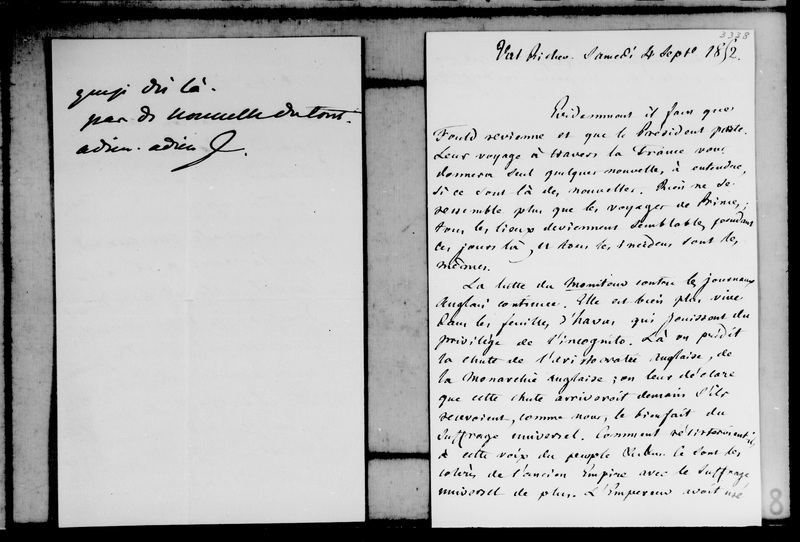 que j'ai dit là.
pas de nouvelle du tout.
adieu. adieu
3338
Val Richer. Samedi 4 Septe 1852.
Evidemment il faut que
Fould revienne et que le Président parte.
Leur voyage à travers la France vous
donnera seul quelques nouvelles à entendre,
si ce sont là des nouvelles. Rien ne se
ressemble plus que les voyages de Princes;
tous les lieux deviennent semblables pendant
ces jours là, et tous les incidens sont les
mêmes.
La lutte du Moniteur contre les journaux
Anglais continue. Elle est bien plus vive
dans les feuilles d'havas qui jouissent du
privilège de l'incognito. Là on prédit
la chute de l'aristocratie anglaise, de
la Monarchie anglaise; on leur déclare
que cette chute arriveroit demain s'ils
recevoient, comme nous, le bienfait du
suffrage universel. Comment résisteroient ils
à cette voix du peuple ce sont les
colères de l'ancien Empire avec le suffrage
universel de plus. L'Empereur avoit usé
8